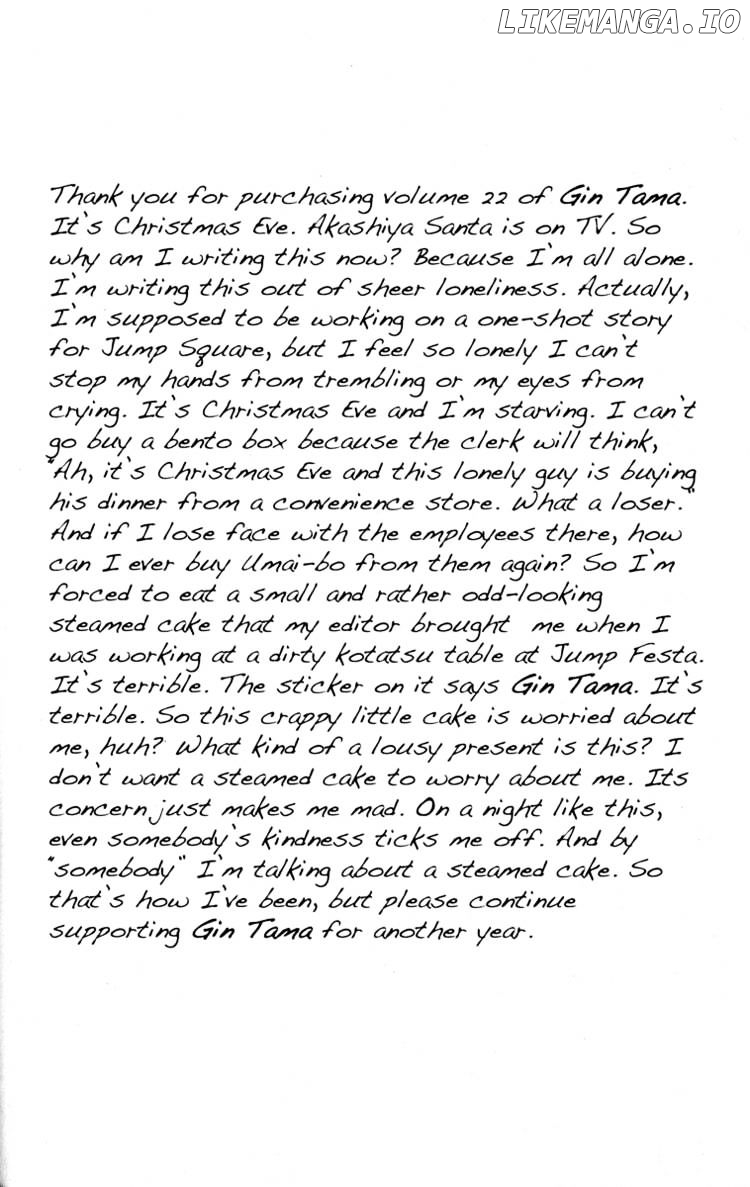 LIKEMANGA.IO
Thank you for purchasing volume 22 of Gin Tama.
It's Christmas Eve. Akashiya Santa is on TV. So
why am I writing this now? Because I'm all alone.
I'm writing this out of sheer loneliness. Actually,
I'm supposed to be working on a one-shot story
for Jump Square, but I feel so lonely I can't
stop my hands from trembling or my eyes from
crying. It's Christmas Eve and I'm starving. I can't
go buy a bento box because the clerk will think,
"Ah, it's Christmas Eve and this lonely guy is buying
his dinner from a convenience store. What a loser."
And if I lose face with the employees there, how
can I ever buy Umai-bo from them again? So I'm
forced to eat a small and rather odd-looking
steamed cake that my editor brought me when I
was working at a dirty kotatsu table at Jump Festa.
It's terrible. The sticker on it says Gin Tama. It's
terrible. So this crappy little cake is worried about
me, huh? What kind of a lousy present is this? I
don't want a steamed cake to worry about me. Its
concern just makes me mad. On a night like this,
even somebody's kindness ticks me off. And by
"somebody" I'm talking about a steamed cake. So
that's how I've been, but please continue
supporting Gin Tama for another year.